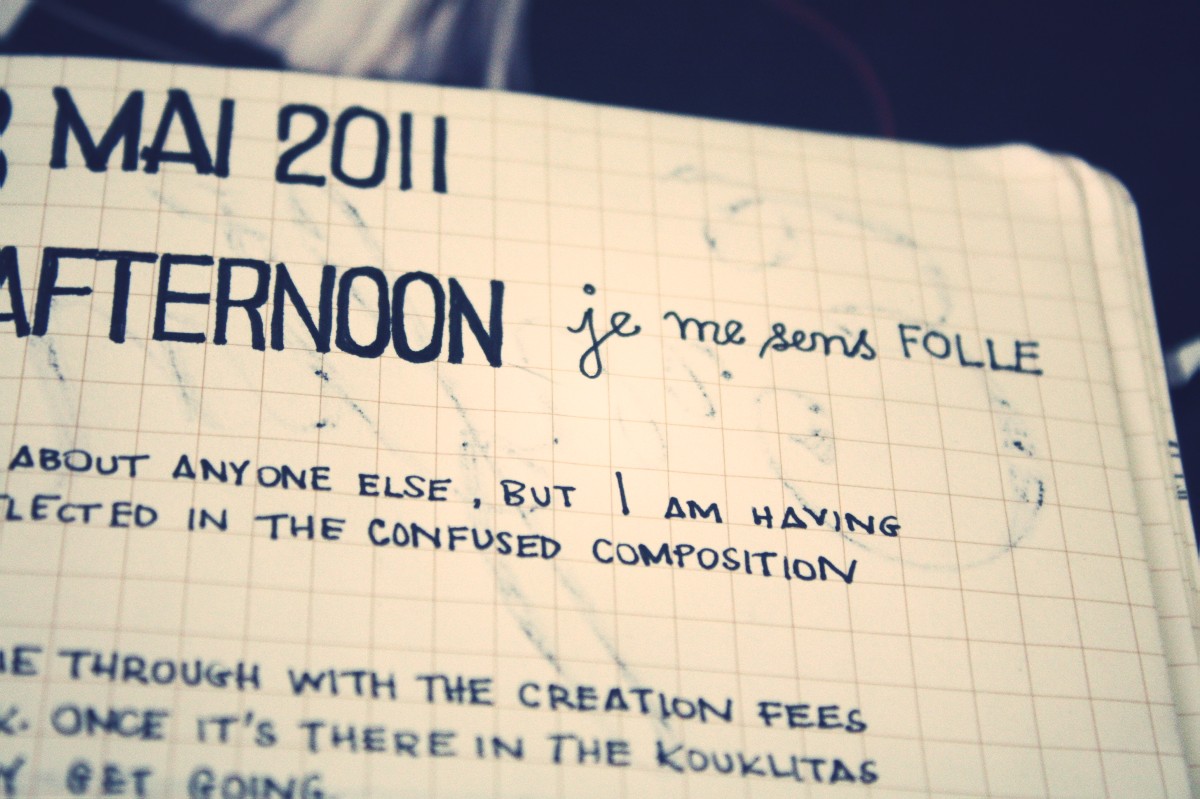 MAI 2011
AFTERNOON je me sens FOLLE
ABOUT ANYONE ELSE, BUT I AM HAVING
LECTED IN THE CONFUSED COMPOSITION
THROUGH WITH THE CREATION FEES
ONCE IT'S THERE IN THE KOUKLITAS
GET GOING.